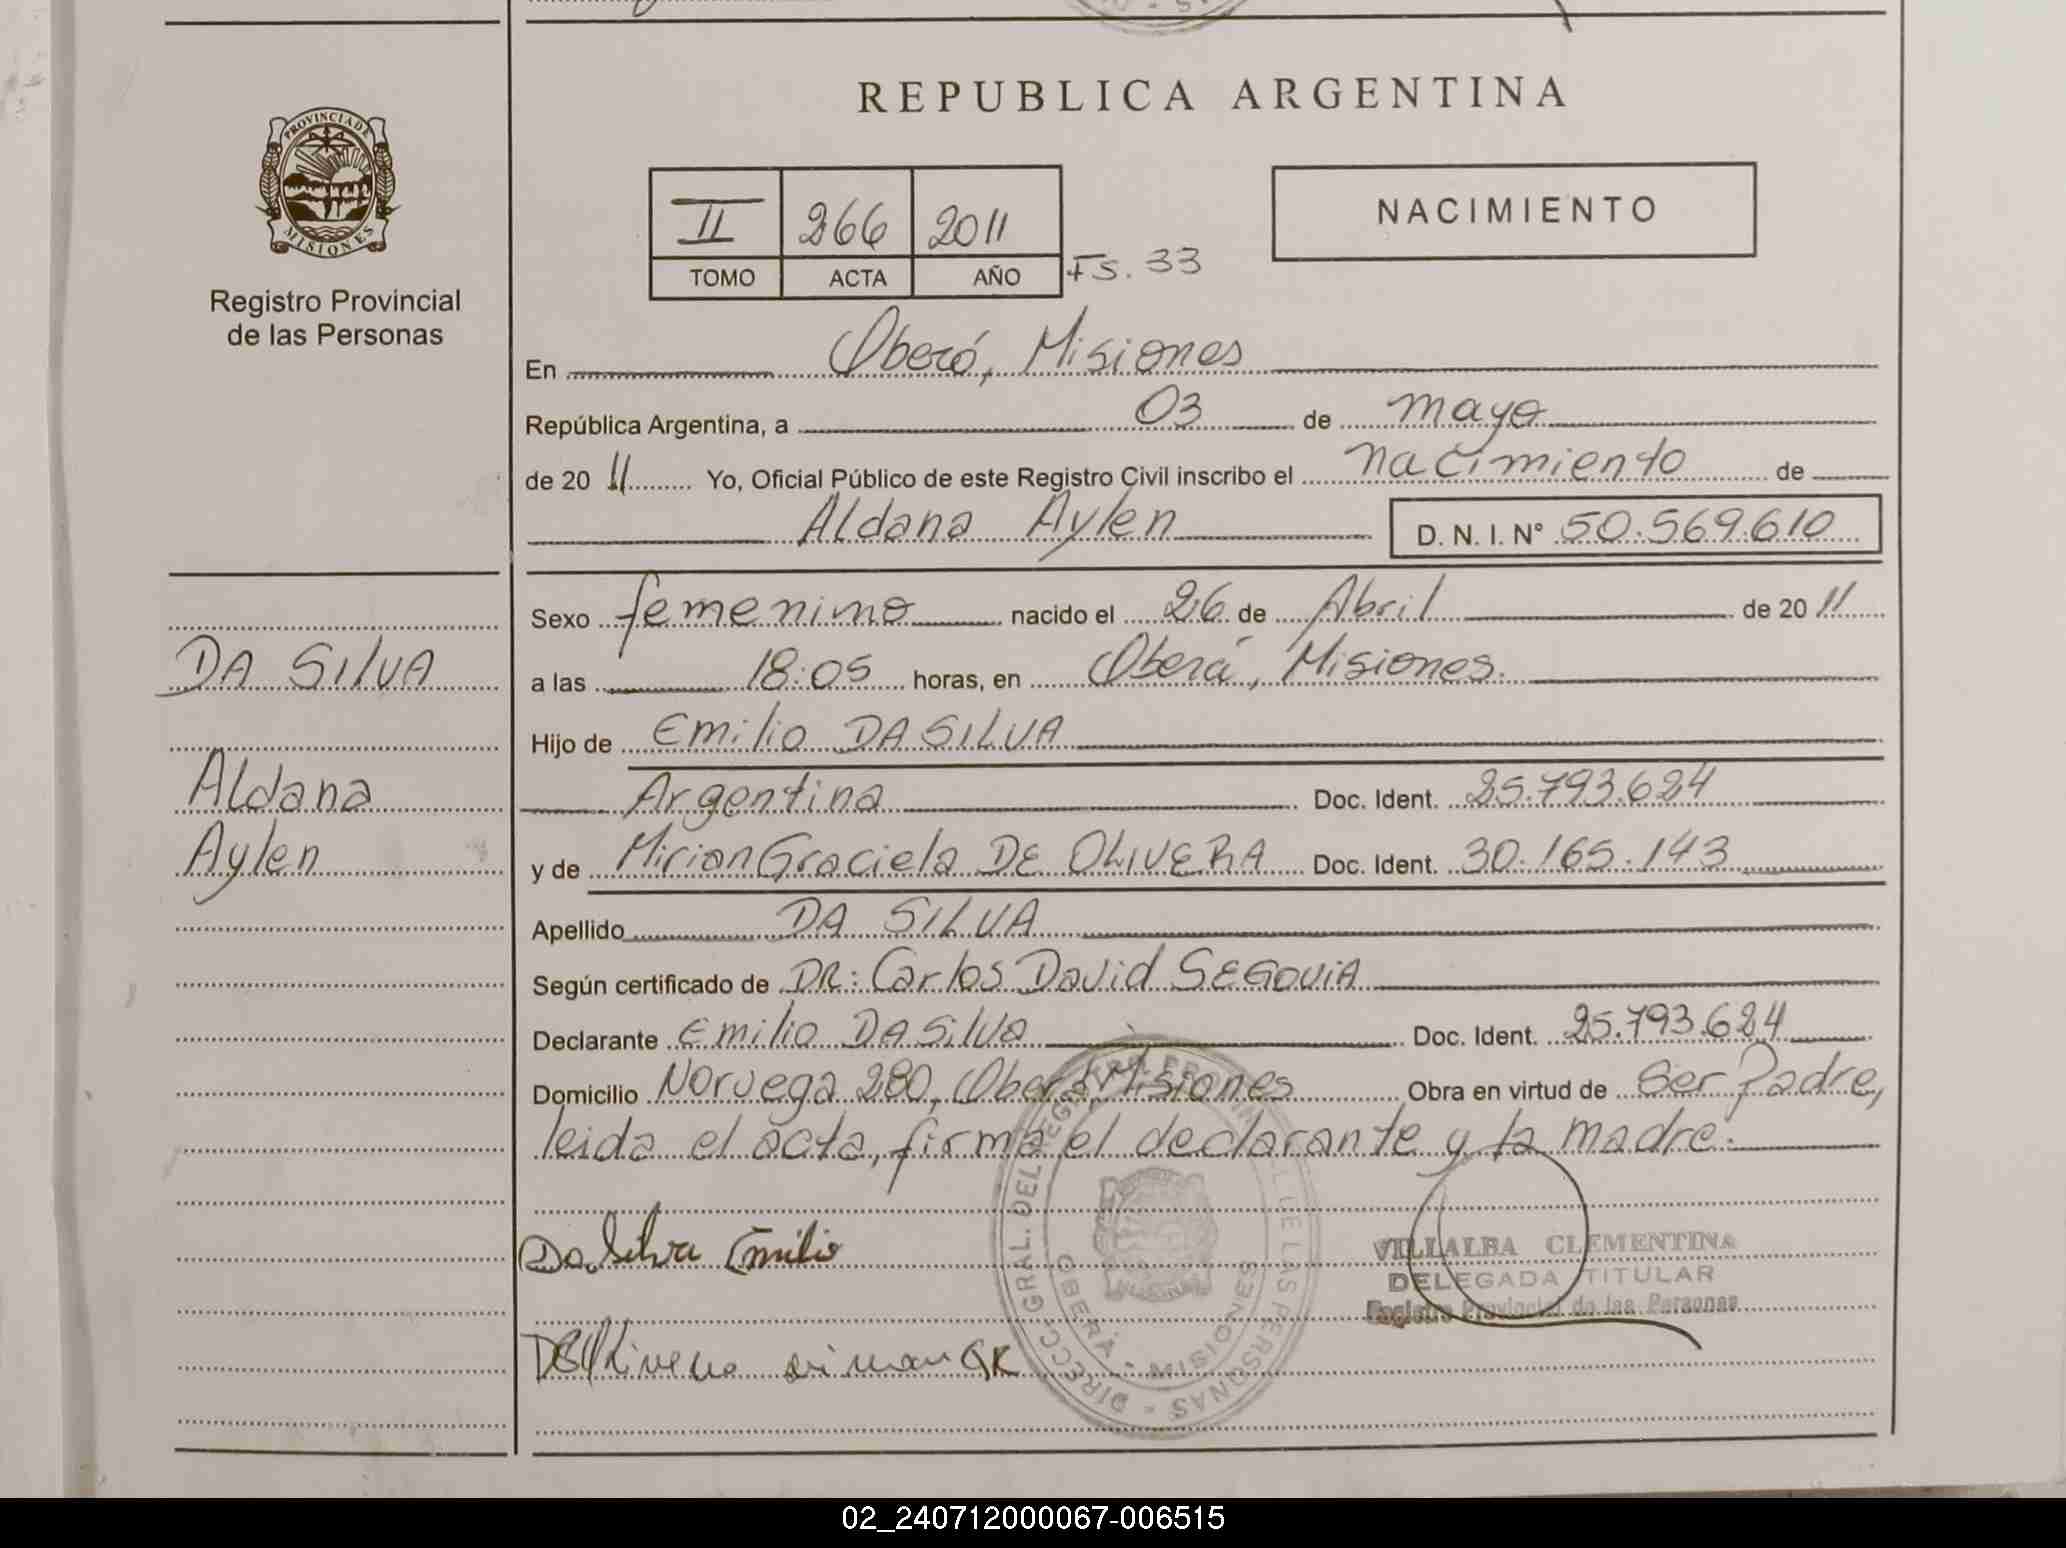 REPUBLICA ARGENTINA
PROVINCIA DE
MISIONES
Registro Provincial
de las Personas
II 266 2011
TOMO ACTA AÑO Fs. 33
NACIMIENTO
En Oberá, Misiones
República Argentina, a 03 de mayo
de 2011 Yo, Oficial Público de este Registro Civil inscribo el nacimiento de
Aldana Aylen D. N. I. N° 50.569.610
Sexo femenino nacido el 26 de Abril de 2011
DA SILVA
a las 18:05 horas, en Oberá, Misiones.
Hijo de Emilio DA SILVA
Aldana
Argentina Doc. Ident. 25.793.624
Aylen
y de Mirian Graciela DE OLIVERA Doc. Ident. 30.165.143
Apellido DA SILVA
Según certificado de DR: Carlos David SEGOVIA
Declarante Emilio DA SILVA Doc. Ident. 25.793.624
Domicilio Noruega 280, Oberá, Misiones Obra en virtud de Ser Padre,
leida el acta, firma el declarante y la madre.
Da Silva Emilio
VILLALBA CLEMENTINA
DELEGADA TITULAR
Registro Provincial de las Personas
DIRECC. GRAL. DEL REGISTRO PROVINCIAL DE LAS PERSONAS
OBERÁ - MISIONES
02_240712000067-006515